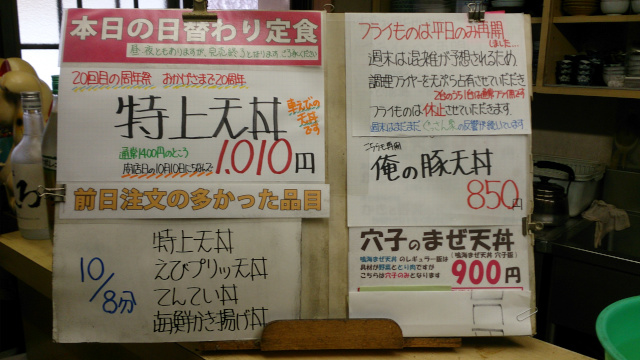 本日の日替わり定食
昼・夜ともありますが、売り切れ
20回目の周年祭 おかげさまで20周年
特上天丼
車えびの
天丼
です
通常1400円のところ
周年記念日の10月10日にちなんで
1,010円
前日注文の多かった品目
10/8分
特上天丼
えびプリッツ天丼
てんてい丼
海鮮かき揚げ丼
フライものは平日のみ再開
しました…
週末は混雑が予想されるため、
調理フライヤーを天ぷら占有させていただき
フライものは休止させていただきます。
こちらも再開
俺の豚天丼
850円
穴子のまぜ天丼
鳴海まぜ天丼 のレギュラー版は
具材が野菜ととり肉ですが
こちらは穴子のみとなります
(鳴海まぜ天丼 穴子版)
900円